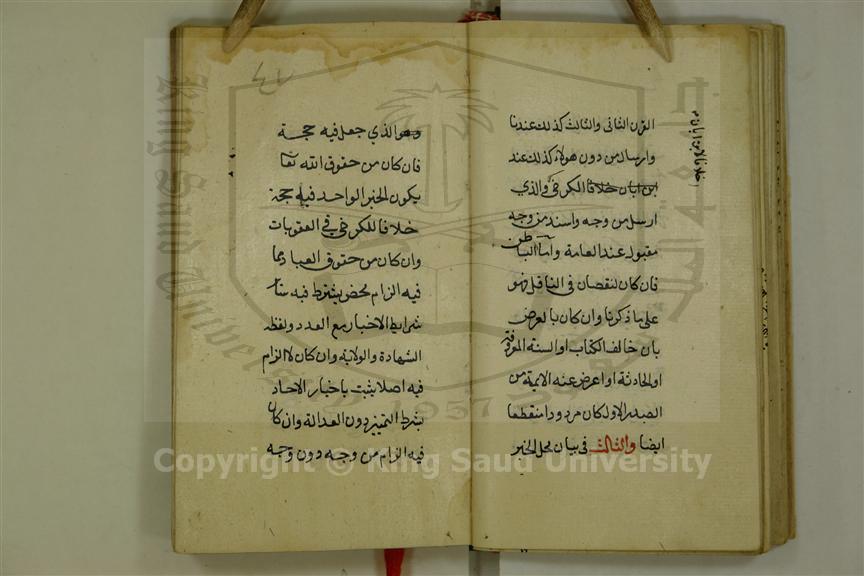 القرن الثانى والثالث كذلك عندنا
وارسال من دون هولاء كذلك عند
ابن ابان خلافا للكرخى والذي
ارسل من وجه واسند من وجه
مقبول عند العامة واما الباطن
فان كان لنقصان فى الناقل فهو
على ما ذكرنا وان كان بالعرض
بان خالف الكتاب او السنة المعروفة
او الحادثة او اعرض عنه الايمة من
الصدر الاول كان مردودا منقطعا
ايضا والثالث فى بيان محل الخبر
٤٧
وهو الذي جعل فيه حجة
فان كان من حقوق الله تعا
يكون الخبر الواحد فيه حجة
خلافا للكرخى فى العقوبات
وان كان من حقوق العباد مما
فيه الزام محض يشترط فيه سائر
شرايط الاخبار مع العدد ولفظ
الشهادة والولاية وان كان لا الزام
فيه اصلا يثبت باخبار الاحاد
بشرط التمييز دون العدالة وان كان
فيه الزام من وجه دون وجه
Copyright © King Saud University
King Saud University
1957